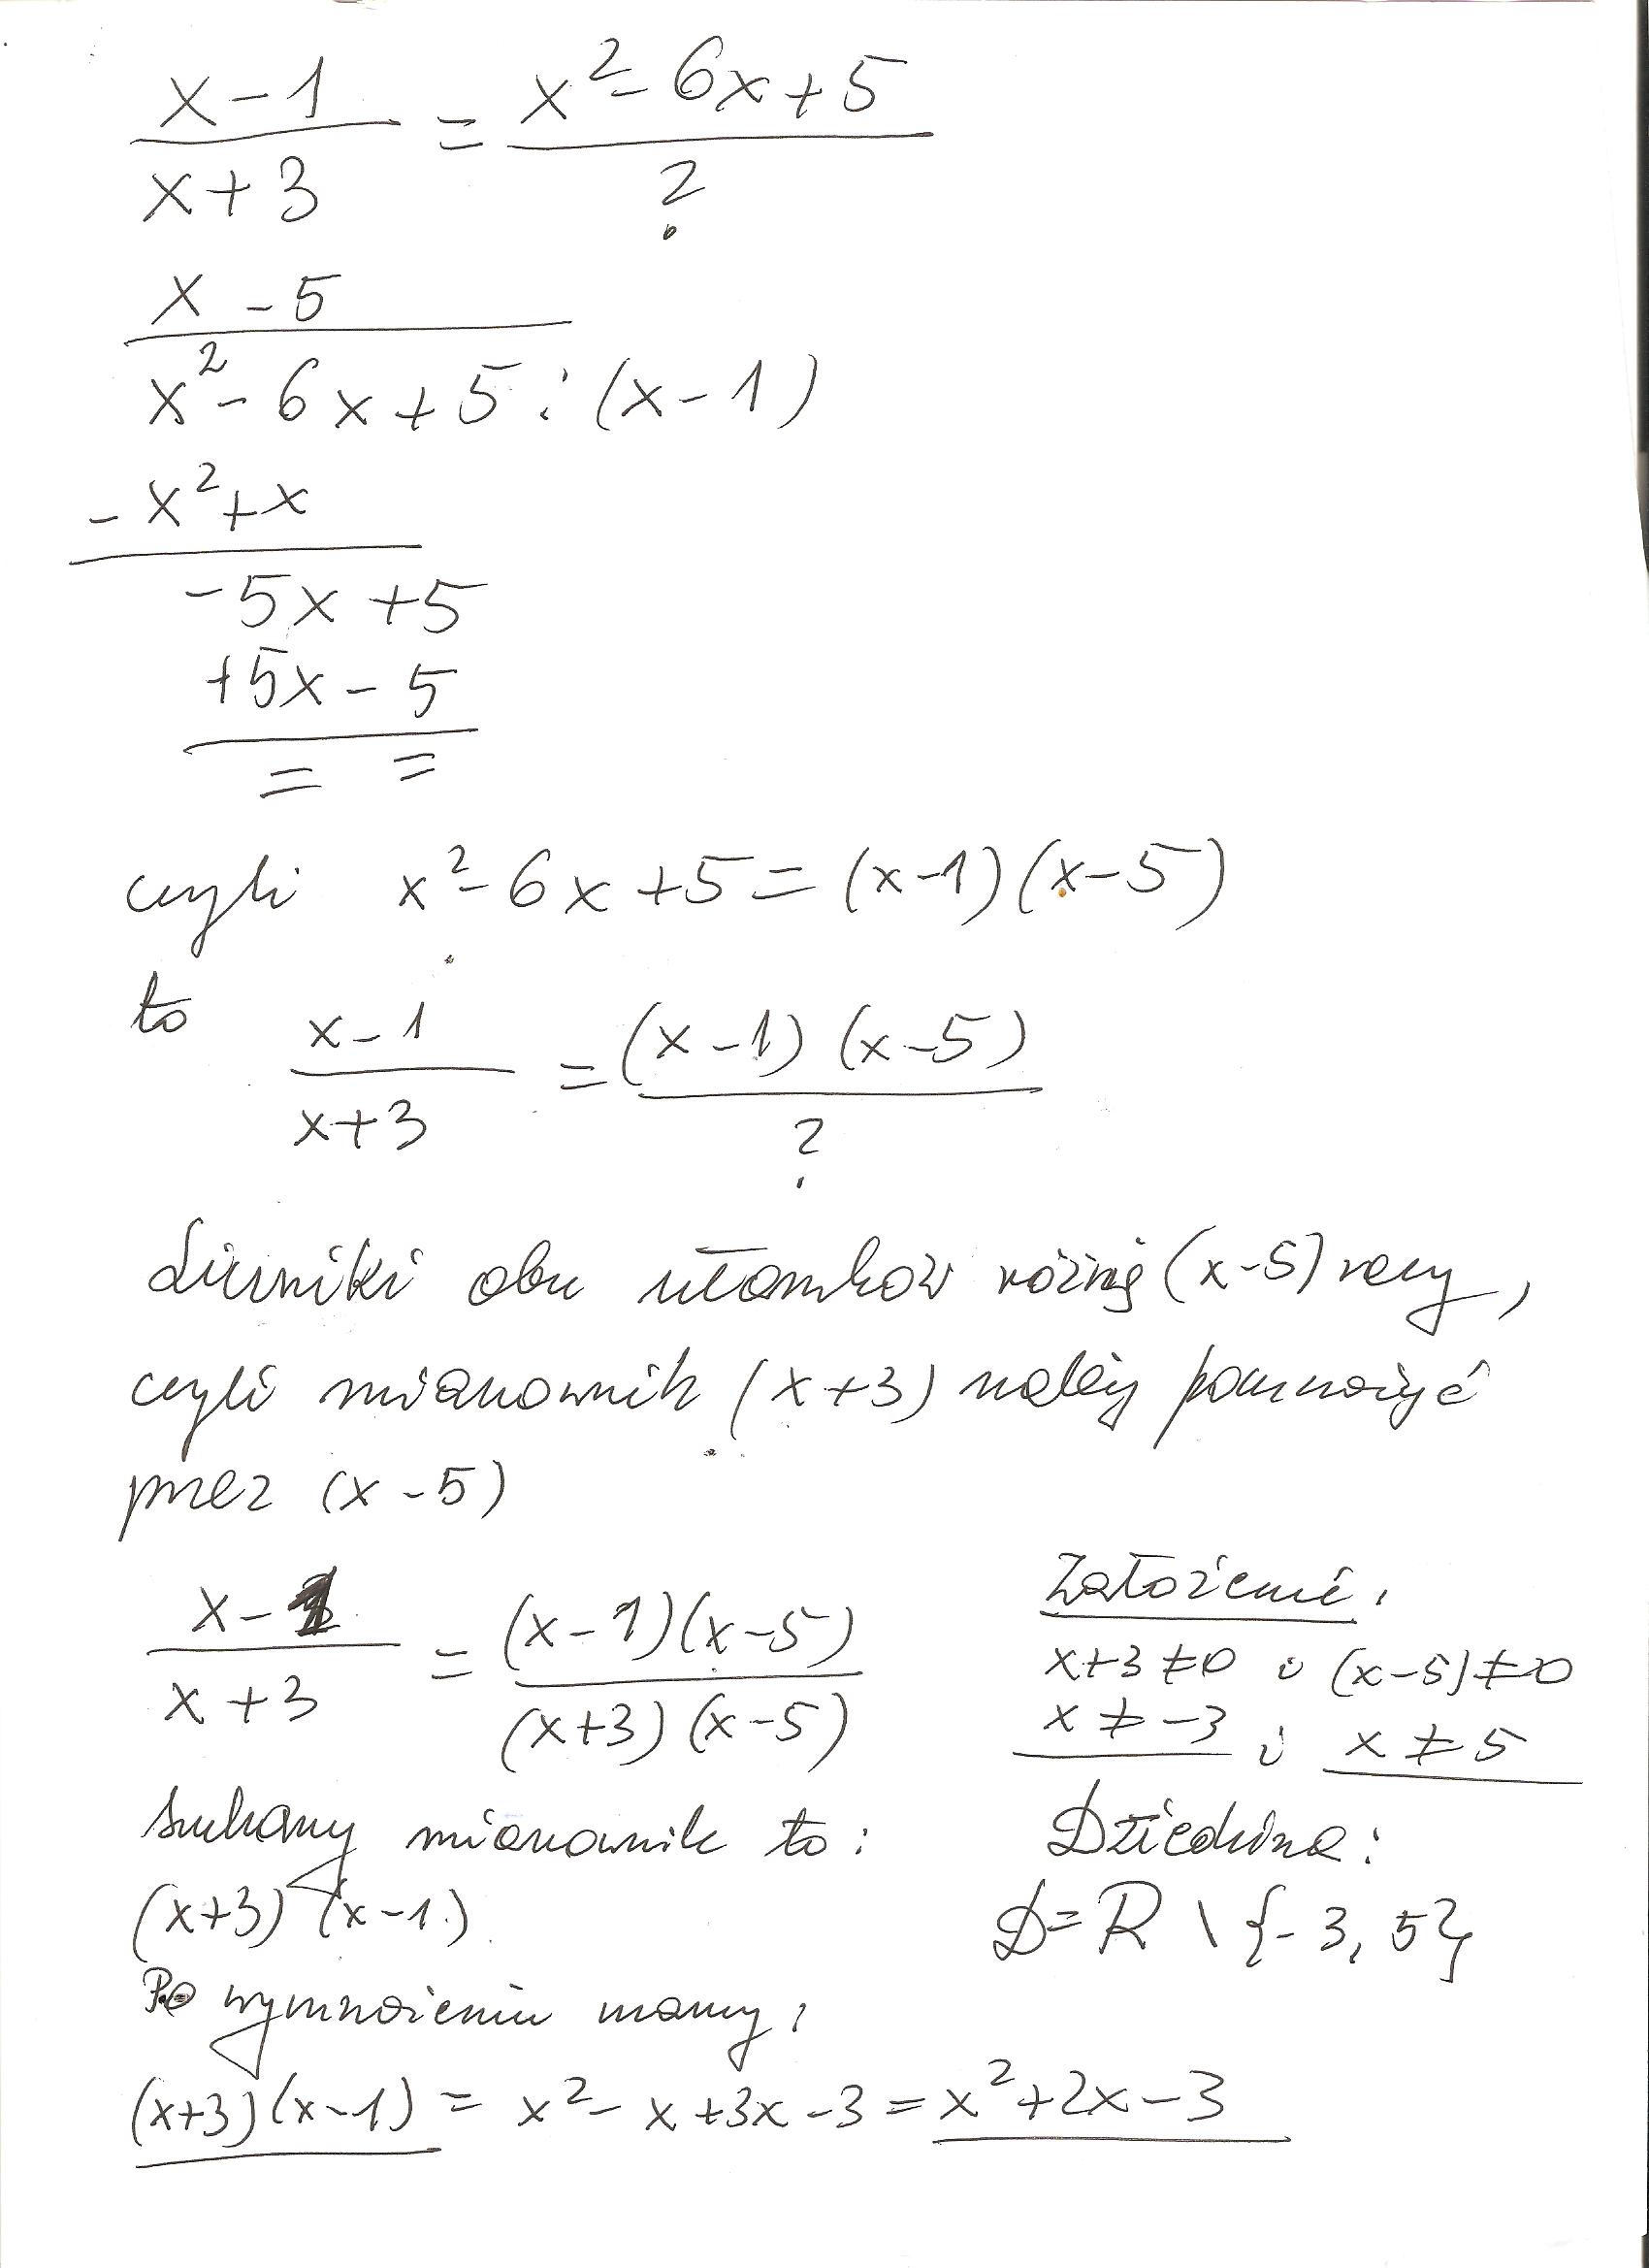 x-1 / x+3 = x²-6x+5 / ?
x - 5
x²-6x+5 : (x-1)
-x²+x
-5x +5
+5x - 5
= =
czyli x²-6x+5=(x-1)(x-5)
to x-1 / x+3 = (x-1)(x-5) / ?
Liczniki obu ułamków różnią (x-5) razy,
czyli mianownik (x+3) należy pomnożyć
przez (x-5)
x-1 / x+3 = (x-1)(x-5) / (x+3)(x-5)
Założenie:
x+3≠0 i (x-5)≠0
x≠-3 i x≠5
Dziedzina:
D=R \ {-3, 5}
Szukany mianownik to:
(x+3)(x-1)
Po wymnożeniu mamy:
(x+3)(x-1) = x²-x+3x-3 = x²+2x-3